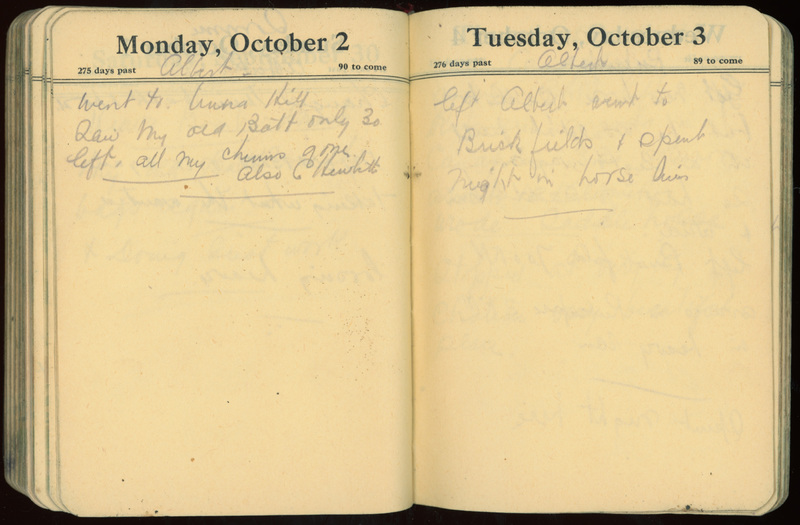 Monday, October 2
275 days past
90 to come
Albert
Went to Hill
Saw My old Batt only 30
left, all my chums gone
Also C
Tuesday, October 3
276 days past
89 to come
Albert
left Albert went to
Brickfields & spent
Night in horse lines